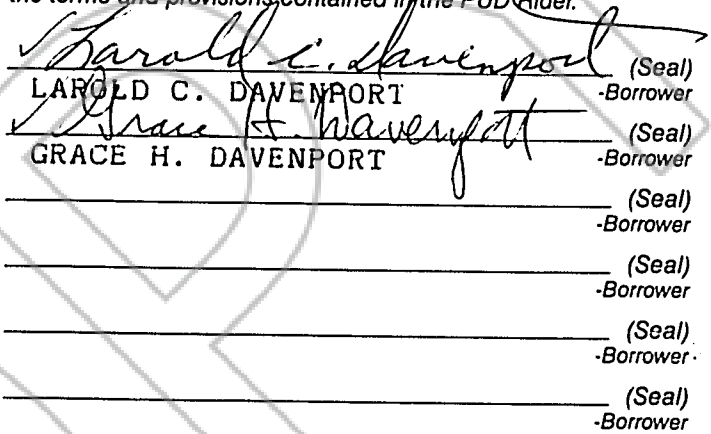 the terms and provisions contained in the PUD Rider.
✓ Larold C. Davenport (Seal)
LAROLD C. DAVENPORT -Borrower
✓ Grace H. Davenport (Seal)
GRACE H. DAVENPORT -Borrower
(Seal)
-Borrower
(Seal)
-Borrower
(Seal)
-Borrower
(Seal)
-Borrower